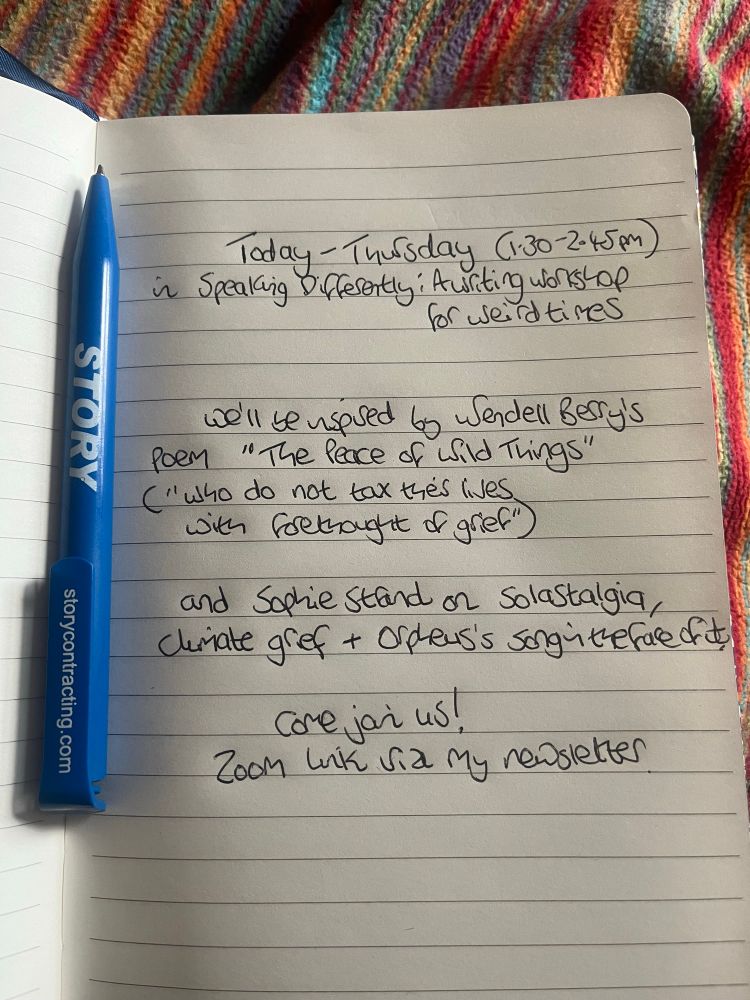 Today - Thursday (1.30-2.45pm)
in Speaking Differently: A writing workshop
for weird times
we'll be inspired by Wendell Berry's
poem "The Peace of Wild Things"
("who do not tax their lives
with forethought of grief")
and Sophie Strand on Solastalgia,
climate grief + Orpheus's song in the face of it.
Come join us!
Zoom link via my newsletter.
STORY
storycontracting.com